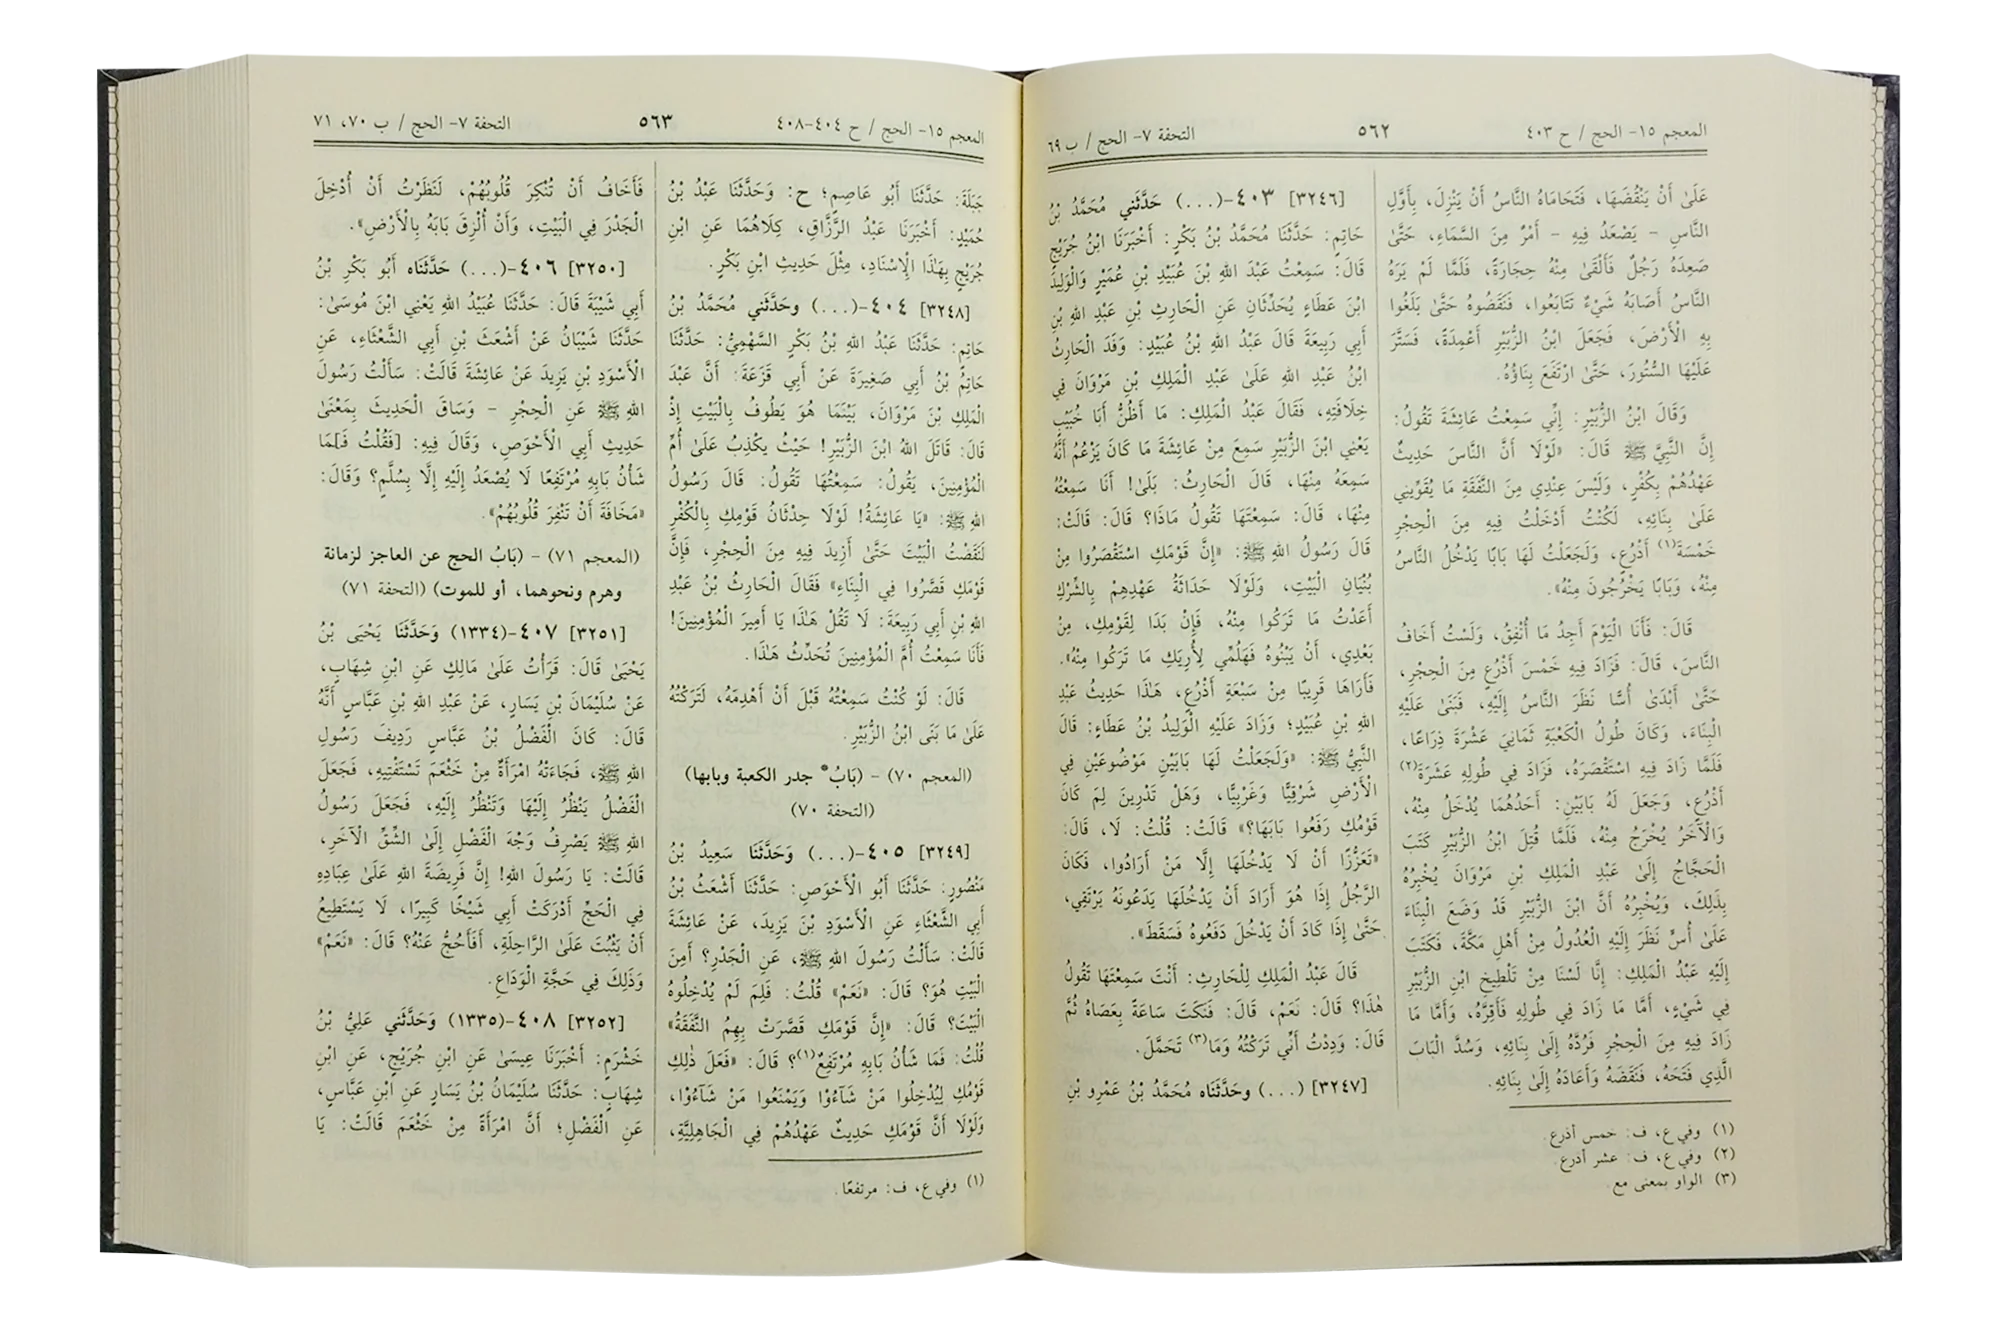 المعجم ١٥- الحج / ح ٤٠٣
٥٦٢
التحفة ٧- الحج / ب ٦٩
عَلَىٰ أَنْ يَنْقُضَهَا، فَتَحَامَاهُ النَّاسُ أَنْ يَنْزِلَ، بِأَوَّلِ
النَّاسِ - يَصْعَدُ فِيهِ - أَمْرٌ مِنَ السَّمَاءِ، حَتَّىٰ
صَعِدَهُ رَجُلٌ فَأَلْقَىٰ مِنْهُ حِجَارَةً، فَلَمَّا لَمْ يَرَهُ
النَّاسُ أَصَابَهُ شَيْءٌ تَتَابَعُوا، فَنَقَضُوهُ حَتَّىٰ بَلَغُوا
بِهِ الْأَرْضَ، فَجَعَلَ ابْنُ الزُّبَيْرِ أَعْمِدَةً، فَسَتَّرَ
عَلَيْهَا السُّتُورَ، حَتَّىٰ ارْتَفَعَ بِنَاؤُهُ.
وَقَالَ ابْنُ الزُّبَيْرِ: إِنِّي سَمِعْتُ عَائِشَةَ تَقُولُ:
إِنَّ النَّبِيَّ ﷺ قَالَ: «لَوْلَا أَنَّ النَّاسَ حَدِيثٌ
عَهْدُهُمْ بِكُفْرٍ، وَلَيْسَ عِنْدِي مِنَ النَّفَقَةِ مَا يُقَوِّينِي
عَلَىٰ بِنَائِهِ، لَكُنْتُ أَدْخَلْتُ فِيهِ مِنَ الْحِجْرِ
خَمْسَةَ(١) أَذْرُعٍ، وَلَجَعَلْتُ لَهَا بَابًا يَدْخُلُ النَّاسُ
مِنْهُ، وَبَابًا يَخْرُجُونَ مِنْهُ».
قَالَ: فَأَنَا الْيَوْمَ أَجِدُ مَا أُنْفِقُ، وَلَسْتُ أَخَافُ
النَّاسَ، قَالَ: فَزَادَ فِيهِ خَمْسَ أَذْرُعٍ مِنَ الْحِجْرِ،
حَتَّىٰ أَبْدَىٰ أُسًّا نَظَرَ النَّاسُ إِلَيْهِ، فَبَنَىٰ عَلَيْهِ
الْبِنَاءَ، وَكَانَ طُولُ الْكَعْبَةِ ثَمَانِيَ عَشْرَةَ ذِرَاعًا،
فَلَمَّا زَادَ فِيهِ اسْتَقْصَرَهُ، فَزَادَ فِي طُولِهِ عَشَرَةَ(٢)
أَذْرُعٍ، وَجَعَلَ لَهُ بَابَيْنِ: أَحَدُهُمَا يُدْخَلُ مِنْهُ،
وَالْآخَرُ يُخْرَجُ مِنْهُ، فَلَمَّا قُتِلَ ابْنُ الزُّبَيْرِ كَتَبَ
الْحَجَّاجُ إِلَىٰ عَبْدِ الْمَلِكِ بْنِ مَرْوَانَ يُخْبِرُهُ
بِذَلِكَ، وَيُخْبِرُهُ أَنَّ ابْنَ الزُّبَيْرِ قَدْ وَضَعَ الْبِنَاءَ
عَلَىٰ أُسٍّ نَظَرَ إِلَيْهِ الْعُدُولُ مِنْ أَهْلِ مَكَّةَ، فَكَتَبَ
إِلَيْهِ عَبْدُ الْمَلِكِ: إِنَّا لَسْنَا مِنْ تَلْطِيخِ ابْنِ الزُّبَيْرِ
فِي شَيْءٍ، أَمَّا مَا زَادَ فِي طُولِهِ فَأَقِرَّهُ، وَأَمَّا مَا
زَادَ فِيهِ مِنَ الْحِجْرِ فَرُدَّهُ إِلَىٰ بِنَائِهِ، وَسُدَّ الْبَابَ
الَّذِي فَتَحَهُ، فَنَقَضَهُ وَأَعَادَهُ إِلَىٰ بِنَائِهِ.
[٣٢٤٦] ٤٠٣-(...) حَدَّثَنِي مُحَمَّدُ بْنُ
حَاتِمٍ: حَدَّثَنَا مُحَمَّدُ بْنُ بَكْرٍ: أَخْبَرَنَا ابْنُ جُرَيْجٍ
قَالَ: سَمِعْتُ عَبْدَ اللهِ بْنَ عُبَيْدِ بْنِ عُمَيْرٍ وَالْوَلِيدَ
ابْنَ عَطَاءٍ يُحَدِّثَانِ عَنِ الْحَارِثِ بْنِ عَبْدِ اللهِ بْنِ
أَبِي رَبِيعَةَ قَالَ عَبْدُ اللهِ بْنُ عُبَيْدٍ: وَفَدَ الْحَارِثُ
ابْنُ عَبْدِ اللهِ عَلَىٰ عَبْدِ الْمَلِكِ بْنِ مَرْوَانَ فِي
خِلَافَتِهِ، فَقَالَ عَبْدُ الْمَلِكِ: مَا أَظُنُّ أَبَا خُبَيْبٍ
يَعْنِي ابْنَ الزُّبَيْرِ سَمِعَ مِنْ عَائِشَةَ مَا كَانَ يَزْعُمُ أَنَّهُ
سَمِعَهُ مِنْهَا، قَالَ الْحَارِثُ: بَلَىٰ! أَنَا سَمِعْتُهُ
مِنْهَا، قَالَ: سَمِعْتَهَا تَقُولُ مَاذَا؟ قَالَ: قَالَتْ:
قَالَ رَسُولُ اللهِ ﷺ: «إِنَّ قَوْمَكِ اسْتَقْصَرُوا مِنْ
بُنْيَانِ الْبَيْتِ، وَلَوْلَا حَدَاثَةُ عَهْدِهِمْ بِالشِّرْكِ
أَعَدْتُ مَا تَرَكُوا مِنْهُ، فَإِنْ بَدَا لِقَوْمِكِ، مِنْ
بَعْدِي، أَنْ يَبْنُوهُ فَهَلُمِّي لِأُرِيَكِ مَا تَرَكُوا مِنْهُ».
فَأَرَاهَا قَرِيبًا مِنْ سَبْعَةِ أَذْرُعٍ، هَـٰذَا حَدِيثُ عَبْدِ
اللهِ بْنِ عُبَيْدٍ؛ وَزَادَ عَلَيْهِ الْوَلِيدُ بْنُ عَطَاءٍ: قَالَ
النَّبِيُّ ﷺ: «وَلَجَعَلْتُ لَهَا بَابَيْنِ مَوْضُوعَيْنِ فِي
الْأَرْضِ شَرْقِيًّا وَغَرْبِيًّا، وَهَلْ تَدْرِينَ لِمَ كَانَ
قَوْمُكِ رَفَعُوا بَابَهَا؟» قَالَتْ: قُلْتُ: لَا، قَالَ:
«تَعَزُّزًا أَنْ لَا يَدْخُلَهَا إِلَّا مَنْ أَرَادُوا، فَكَانَ
الرَّجُلُ إِذَا هُوَ أَرَادَ أَنْ يَدْخُلَهَا يَدَعُونَهُ يَرْتَقِي،
حَتَّىٰ إِذَا كَادَ أَنْ يَدْخُلَ دَفَعُوهُ فَسَقَطَ».
قَالَ عَبْدُ الْمَلِكِ لِلْحَارِثِ: أَنْتَ سَمِعْتَهَا تَقُولُ
هَٰذَا؟ قَالَ: نَعَمْ، قَالَ: فَنَكَتَ سَاعَةً بِعَصَاهُ ثُمَّ
قَالَ: وَدِدْتُ أَنِّي تَرَكْتُهُ وَمَا(٣) تَحَمَّلَ.
[٣٢٤٧] (...) وحَدَّثَنَاه مُحَمَّدُ بْنُ عَمْرِو بْنِ
(١) وفي ع، ف: خمس أذرع.
(٢) وفي ع، ف: عشر أذرع.
(٣) الواو بمعنى مع.
المعجم ١٥- الحج / ح ٤٠٤-٤٠٨
٥٦٣
التحفة ٧- الحج / ب ٧٠، ٧١
جَبَلَةَ: حَدَّثَنَا أَبُو عَاصِمٍ؛ ح: وَحَدَّثَنَا عَبْدُ بْنُ
حُمَيْدٍ: أَخْبَرَنَا عَبْدُ الرَّزَّاقِ، كِلَاهُمَا عَنِ ابْنِ
جُرَيْجٍ بِهَـٰذَا الْإِسْنَادِ، مِثْلَ حَدِيثِ ابْنِ بَكْرٍ.
[٣٢٤٨] ٤٠٤-(...) وحَدَّثَنِي مُحَمَّدُ بْنُ
حَاتِمٍ: حَدَّثَنَا عَبْدُ اللهِ بْنُ بَكْرٍ السَّهْمِيُّ: حَدَّثَنَا
حَاتِمُ بْنُ أَبِي صَغِيرَةَ عَنْ أَبِي قَزَعَةَ: أَنَّ عَبْدَ
الْمَلِكِ بْنَ مَرْوَانَ، بَيْنَمَا هُوَ يَطُوفُ بِالْبَيْتِ إِذْ
قَالَ: قَاتَلَ اللهُ ابْنَ الزُّبَيْرِ! حَيْثُ يَكْذِبُ عَلَىٰ أُمِّ
الْمُؤْمِنِينَ، يَقُولُ: سَمِعْتُهَا تَقُولُ: قَالَ رَسُولُ
اللهِ ﷺ: «يَا عَائِشَةُ! لَوْلَا حِدْثَانُ قَوْمِكِ بِالْكُفْرِ
لَنَقَضْتُ الْبَيْتَ حَتَّىٰ أَزِيدَ فِيهِ مِنَ الْحِجْرِ، فَإِنَّ
قَوْمَكِ قَصَّرُوا فِي الْبِنَاءِ» فَقَالَ الْحَارِثُ بْنُ عَبْدِ
اللهِ بْنِ أَبِي رَبِيعَةَ: لَا تَقُلْ هَـٰذَا يَا أَمِيرَ الْمُؤْمِنِينَ!
فَأَنَا سَمِعْتُ أُمَّ الْمُؤْمِنِينَ تُحَدِّثُ هَـٰذَا.
قَالَ: لَوْ كُنْتُ سَمِعْتُهُ قَبْلَ أَنْ أَهْدِمَهُ، لَتَرَكْتُهُ
عَلَىٰ مَا بَنَى ابْنُ الزُّبَيْرِ.
(المعجم ٧٠) - (بَابُ* جدر الكعبة وبابها)
(التحفة ٧٠)
[٣٢٤٩] ٤٠٥-(...) وَحَدَّثَنَا سَعِيدُ بْنُ
مَنْصُورٍ: حَدَّثَنَا أَبُو الْأَحْوَصِ: حَدَّثَنَا أَشْعَثُ بْنُ
أَبِي الشَّعْثَاءِ عَنِ الْأَسْوَدِ بْنِ يَزِيدَ، عَنْ عَائِشَةَ
قَالَتْ: سَأَلْتُ رَسُولَ اللهِ ﷺ، عَنِ الْجَدْرِ؟ أَمِنَ
الْبَيْتِ هُوَ؟ قَالَ: «نَعَمْ» قُلْتُ: فَلِمَ لَمْ يُدْخِلُوهُ
الْبَيْتَ؟ قَالَ: «إِنَّ قَوْمَكِ قَصَّرَتْ بِهِمُ النَّفَقَةُ»
قُلْتُ: فَمَا شَأْنُ بَابِهِ مُرْتَفِعٌ(١)؟ قَالَ: «فَعَلَ ذٰلِكِ
قَوْمُكِ لِيُدْخِلُوا مَنْ شَآءُوْا وَيَمْنَعُوا مَنْ شَآءُوْا،
وَلَوْلَا أَنَّ قَوْمَكِ حَدِيثٌ عَهْدُهُمْ فِي الْجَاهِلِيَّةِ،
(١) وفي ع، ف: مرتفعًا.
فَأَخَافُ أَنْ تُنْكِرَ قُلُوبُهُمْ، لَنَظَرْتُ أَنْ أُدْخِلَ
الْجَدْرَ فِي الْبَيْتِ، وَأَنْ أُلْزِقَ بَابَهُ بِالْأَرْضِ».
[٣٢٥٠] ٤٠٦-(...) حَدَّثَنَاه أَبُو بَكْرِ بْنُ
أَبِي شَيْبَةَ قَالَ: حَدَّثَنَا عُبَيْدُ اللهِ يَعْنِي ابْنَ مُوسَىٰ:
حَدَّثَنَا شَيْبَانُ عَنْ أَشْعَثَ بْنِ أَبِي الشَّعْثَاءِ، عَنِ
الْأَسْوَدِ بْنِ يَزِيدَ عَنْ عَائِشَةَ قَالَتْ: سَأَلْتُ رَسُولَ
اللهِ ﷺ عَنِ الْحِجْرِ - وَسَاقَ الْحَدِيثَ بِمَعْنَىٰ
حَدِيثِ أَبِي الْأَحْوَصِ، وَقَالَ فِيهِ: [فَقُلْتُ فَ]مَا
شَأْنُ بَابِهِ مُرْتَفِعًا لَا يُصْعَدُ إِلَيْهِ إِلَّا بِسُلَّمٍ؟ وَقَالَ:
«مَخَافَةَ أَنْ تَنْفِرَ قُلُوبُهُمْ».
(المعجم ٧١) - (بَابُ الحج عن العاجز لزمانة
وهرم ونحوهما، أو للموت) (التحفة ٧١)
[٣٢٥١] ٤٠٧-(١٣٣٤) وَحَدَّثَنَا يَحْيَى بْنُ
يَحْيَىٰ قَالَ: قَرَأْتُ عَلَىٰ مَالِكٍ عَنِ ابْنِ شِهَابٍ،
عَنْ سُلَيْمَانَ بْنِ يَسَارٍ، عَنْ عَبْدِ اللهِ بْنِ عَبَّاسٍ أَنَّهُ
قَالَ: كَانَ الْفَضْلُ بْنُ عَبَّاسٍ رَدِيفَ رَسُولِ
اللهِ ﷺ، فَجَاءَتْهُ امْرَأَةٌ مِنْ خَثْعَمَ تَسْتَفْتِيهِ، فَجَعَلَ
الْفَضْلُ يَنْظُرُ إِلَيْهَا وَتَنْظُرُ إِلَيْهِ، فَجَعَلَ رَسُولُ
اللهِ ﷺ يَصْرِفُ وَجْهَ الْفَضْلِ إِلَىٰ الشِّقِّ الْآخَرِ،
قَالَتْ: يَا رَسُولَ اللهِ! إِنَّ فَرِيضَةَ اللهِ عَلَىٰ عِبَادِهِ
فِي الْحَجِّ أَدْرَكَتْ أَبِي شَيْخًا كَبِيرًا، لَا يَسْتَطِيعُ
أَنْ يَثْبُتَ عَلَىٰ الرَّاحِلَةِ، أَفَأَحُجُّ عَنْهُ؟ قَالَ: «نَعَمْ»
وَذَلِكَ فِي حَجَّةِ الْوَدَاعِ.
[٣٢٥٢] ٤٠٨-(١٣٣٥) وَحَدَّثَنِي عَلِيُّ بْنُ
خَشْرَمٍ: أَخْبَرَنَا عِيسَىٰ عَنِ ابْنِ جُرَيْجٍ، عَنِ ابْنِ
شِهَابٍ: حَدَّثَنَا سُلَيْمَانُ بْنُ يَسَارٍ عَنِ ابْنِ عَبَّاسٍ،
عَنِ الْفَضْلِ؛ أَنَّ امْرَأَةً مِنْ خَثْعَمَ قَالَتْ: يَا